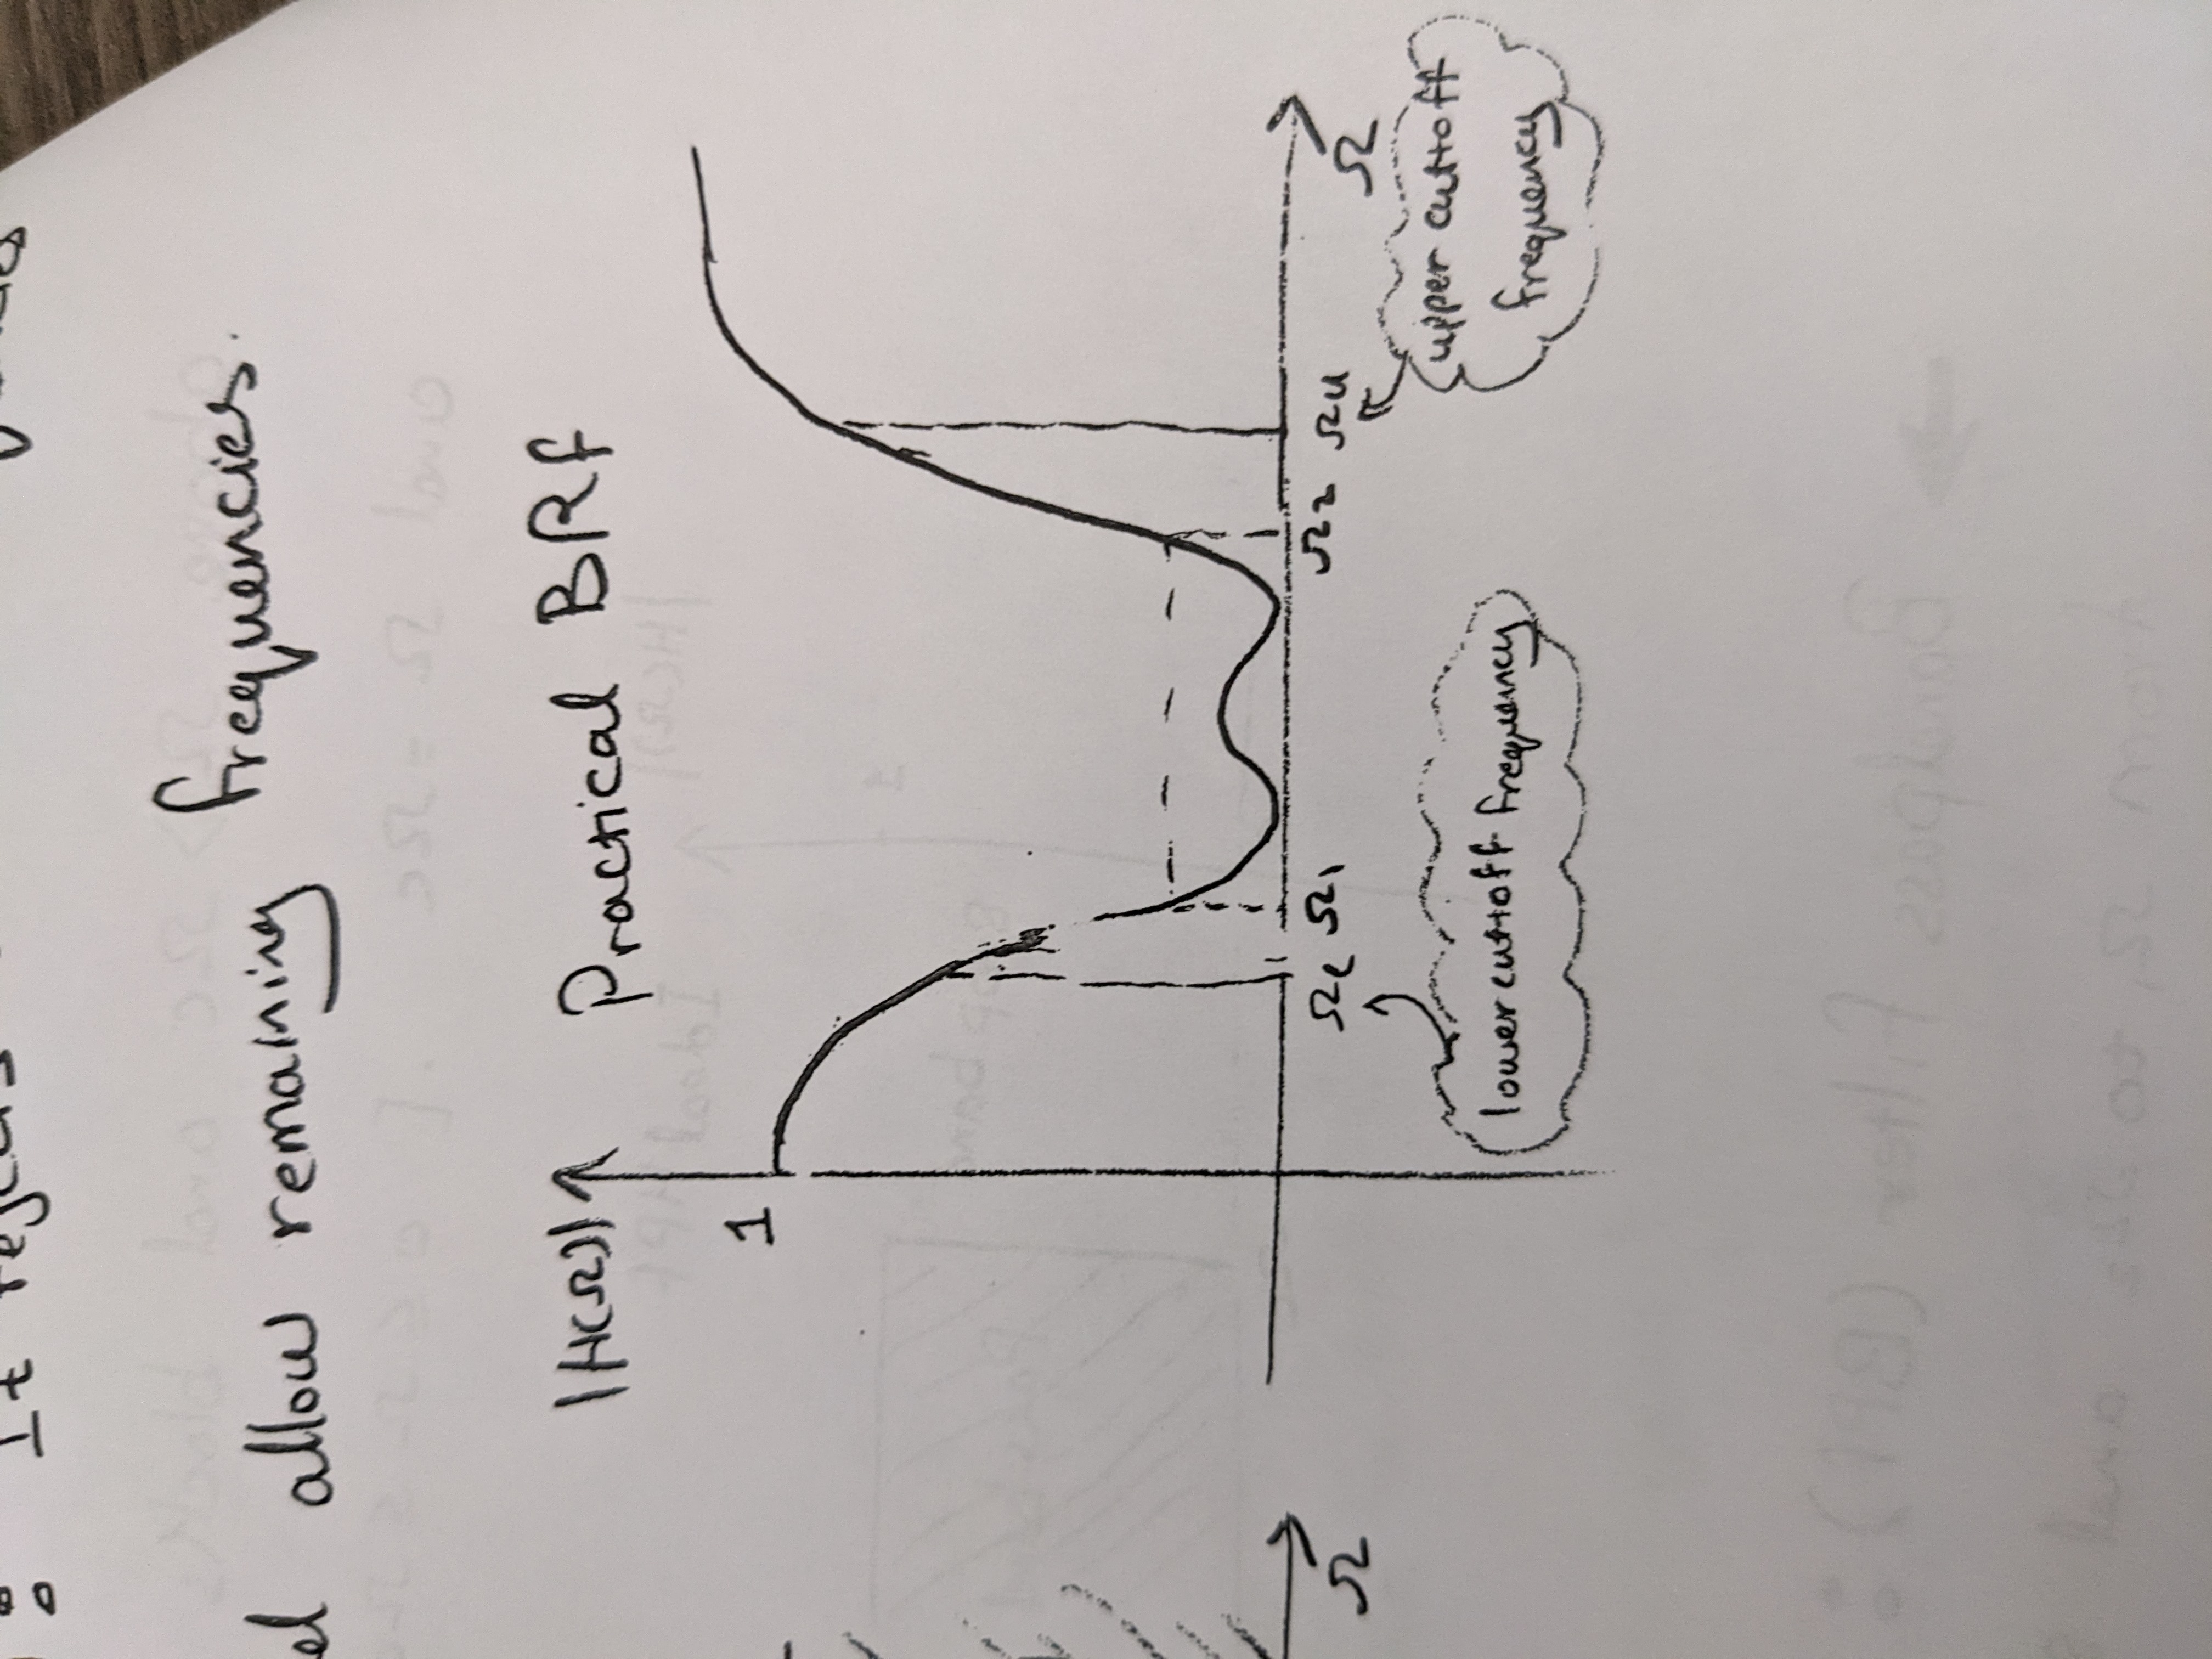 : It rejects
allow remaining frequencies.
|H(Ω)| Practical BRF
1
Ωl Ω1 Ω2 Ωu Ω
Ω
lower cuttoff frequency
upper cuttoff
frequency